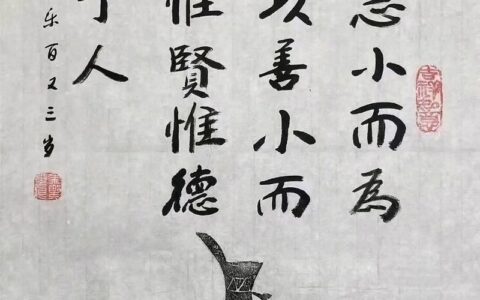 小而為
以善小而
惟賢惟德
于人
乐百又三岁